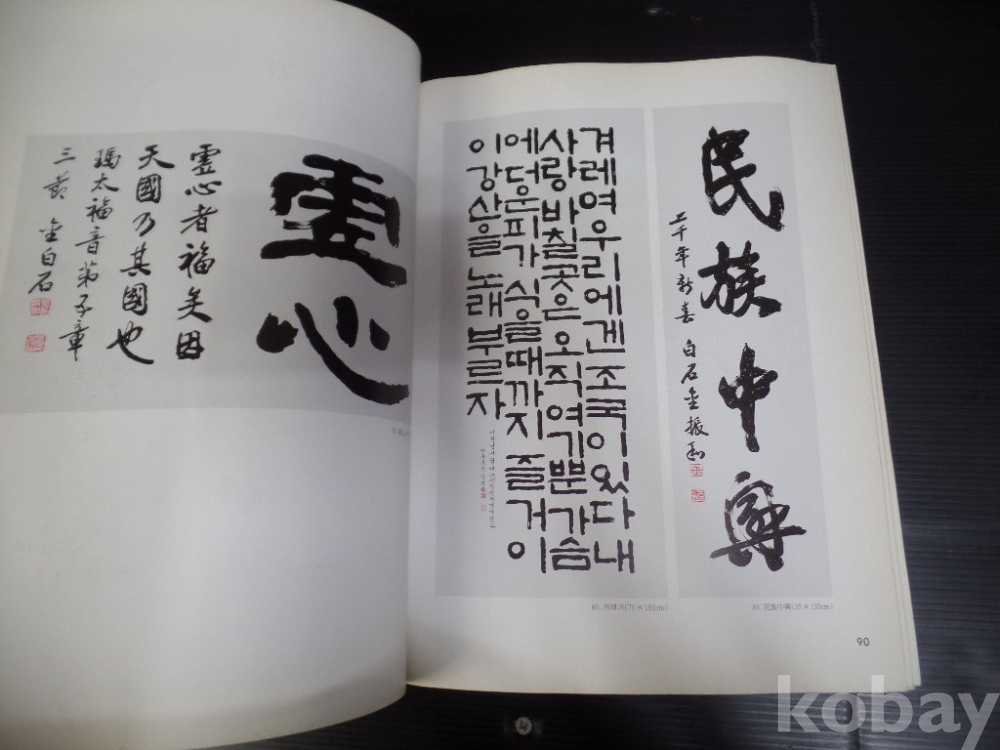 靈心
靈心者福矣因
天國乃其國也
瑪太福音第五章
三節 金白石
民族中興
二千年新春 白石金振
겨레여우리에겐조국이있다내
사랑바칠곳은오직여기뿐가슴
에더운피가식을때까지즐거이
이강산을노래부르자
85. 겨레여(70×132cm)
84. 民族中興(35×135cm)
90
kobay